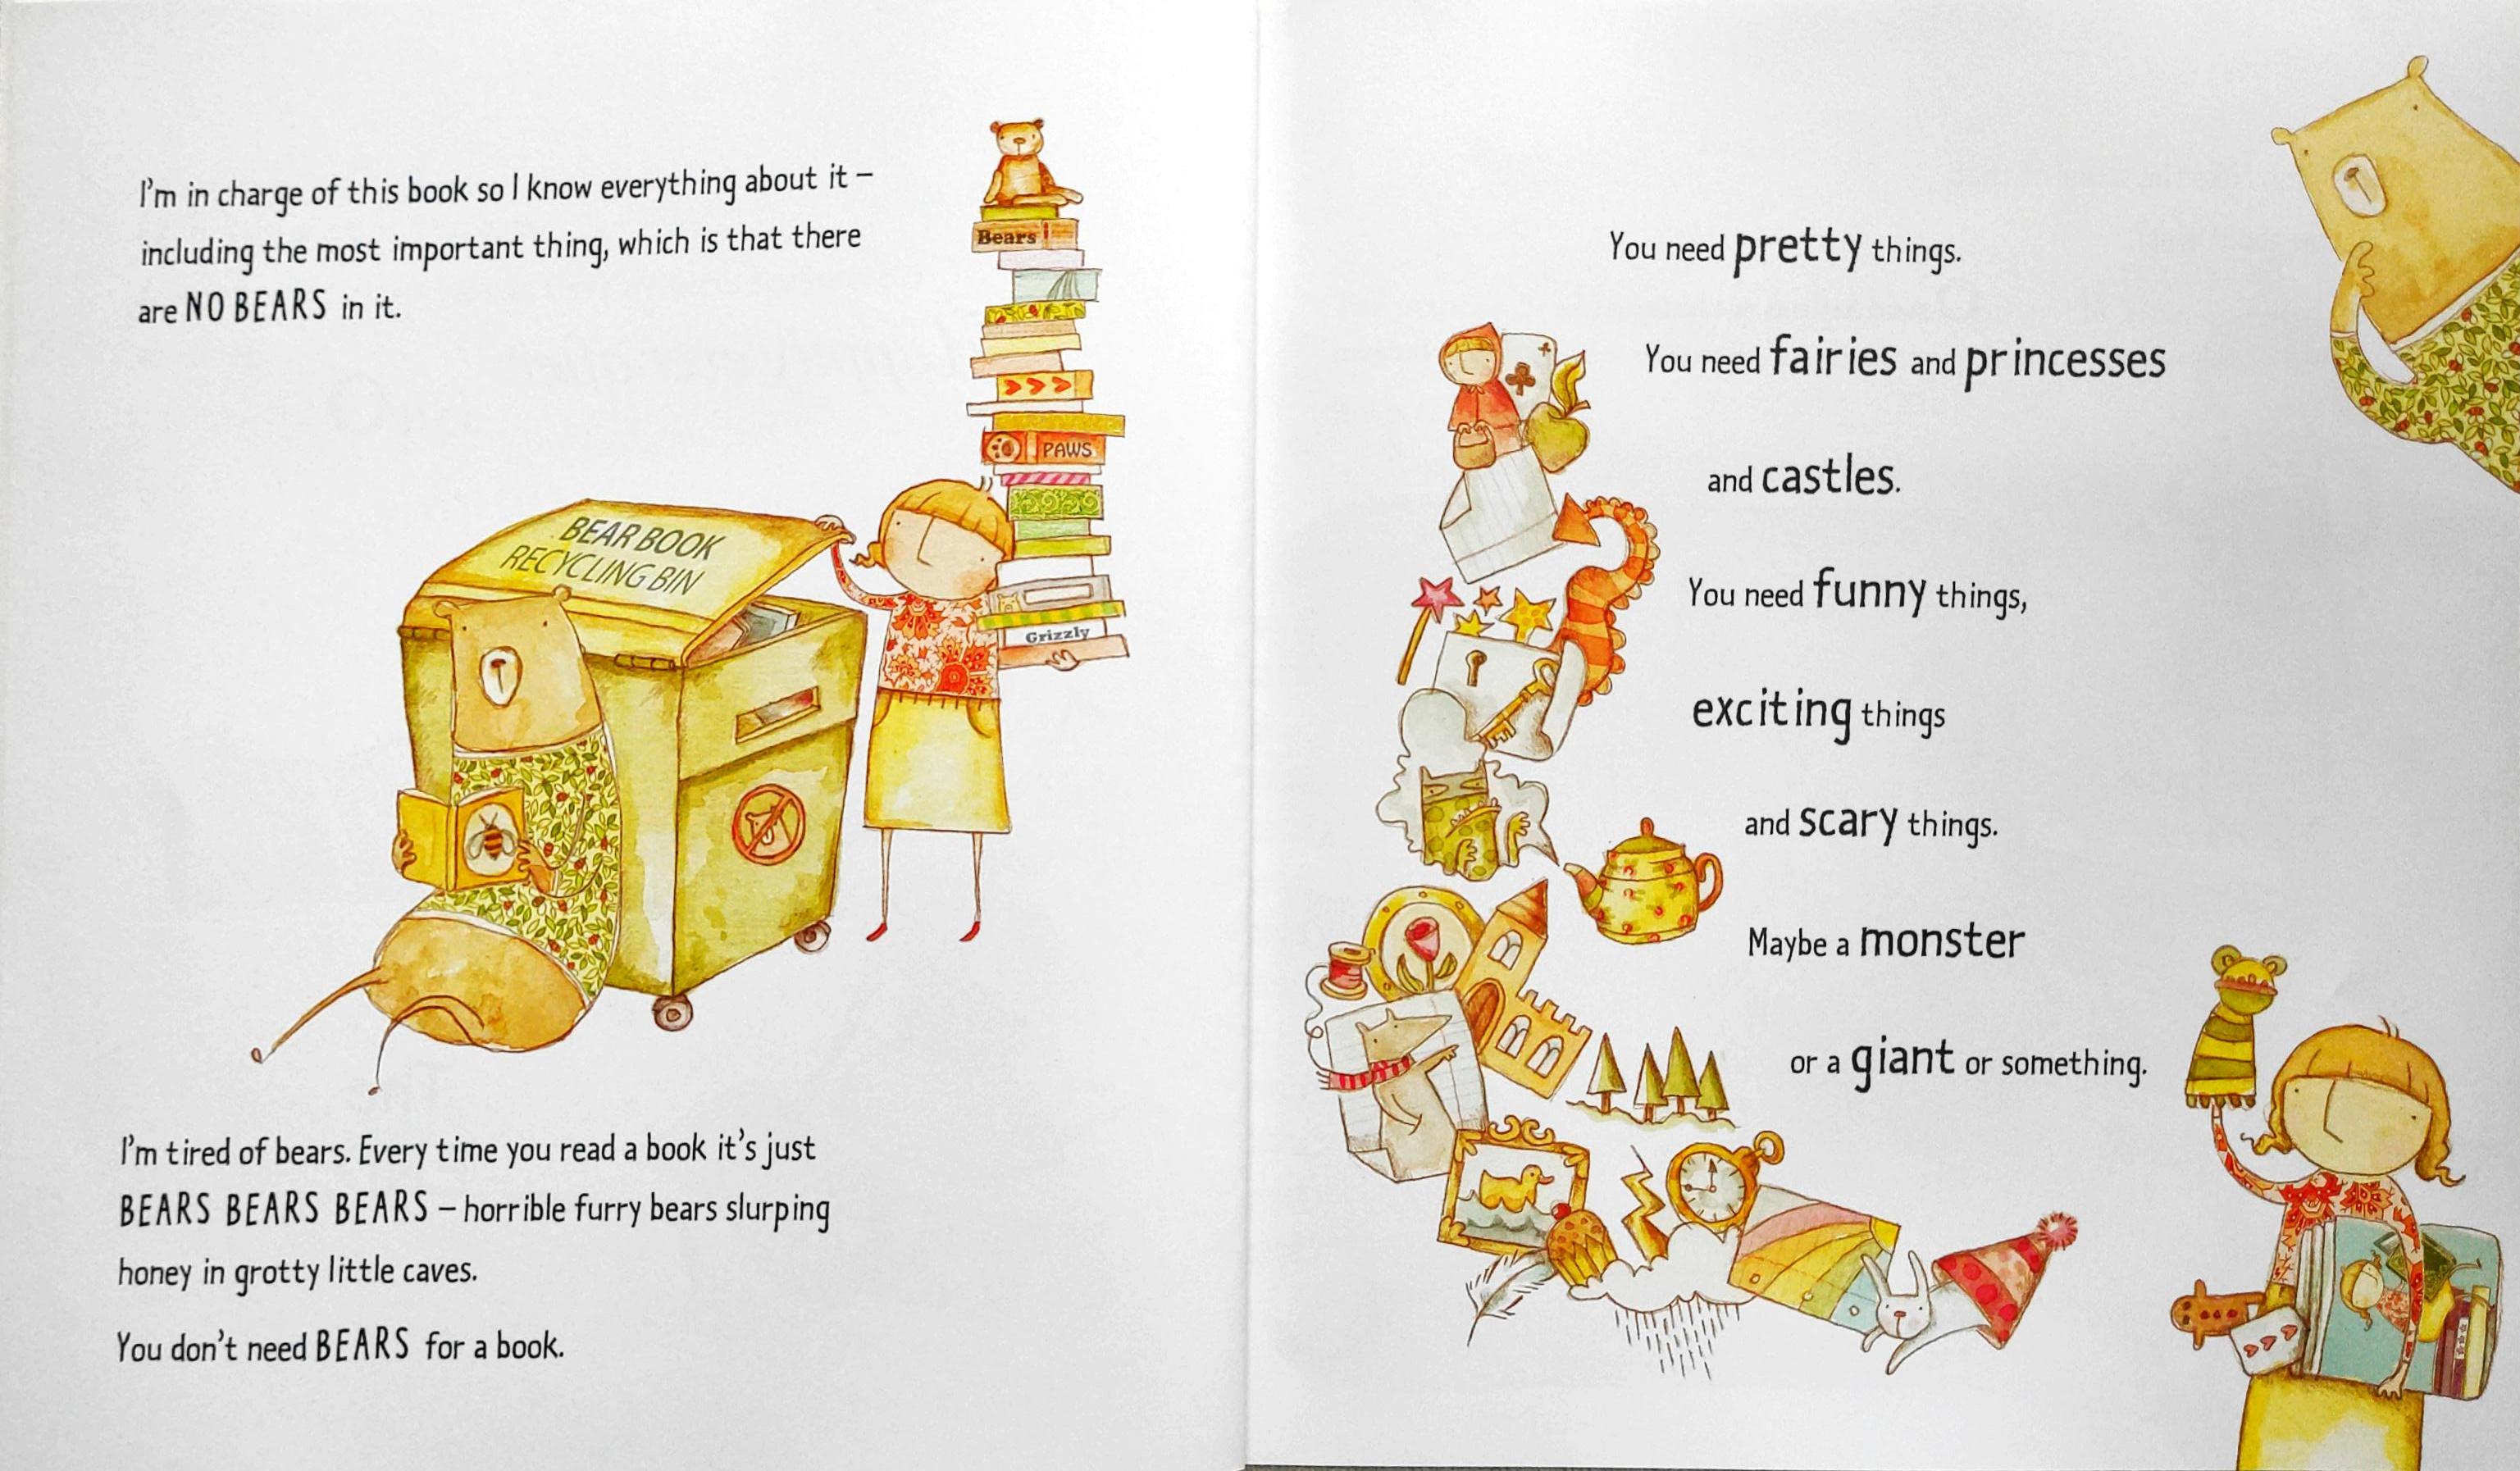 I'm in charge of this book so I know everything about it –
including the most important thing, which is that there
are NO BEARS in it.
Bears
PAWS
Grizzly
BEAR BOOK
RECYCLING BIN
I'm tired of bears. Every time you read a book it's just
BEARS BEARS BEARS – horrible furry bears slurping
honey in grotty little caves.
You don't need BEARS for a book.
You need pretty things.
You need fairies and princesses
and castles.
You need funny things,
exciting things
and scary things.
Maybe a monster
or a giant or something.